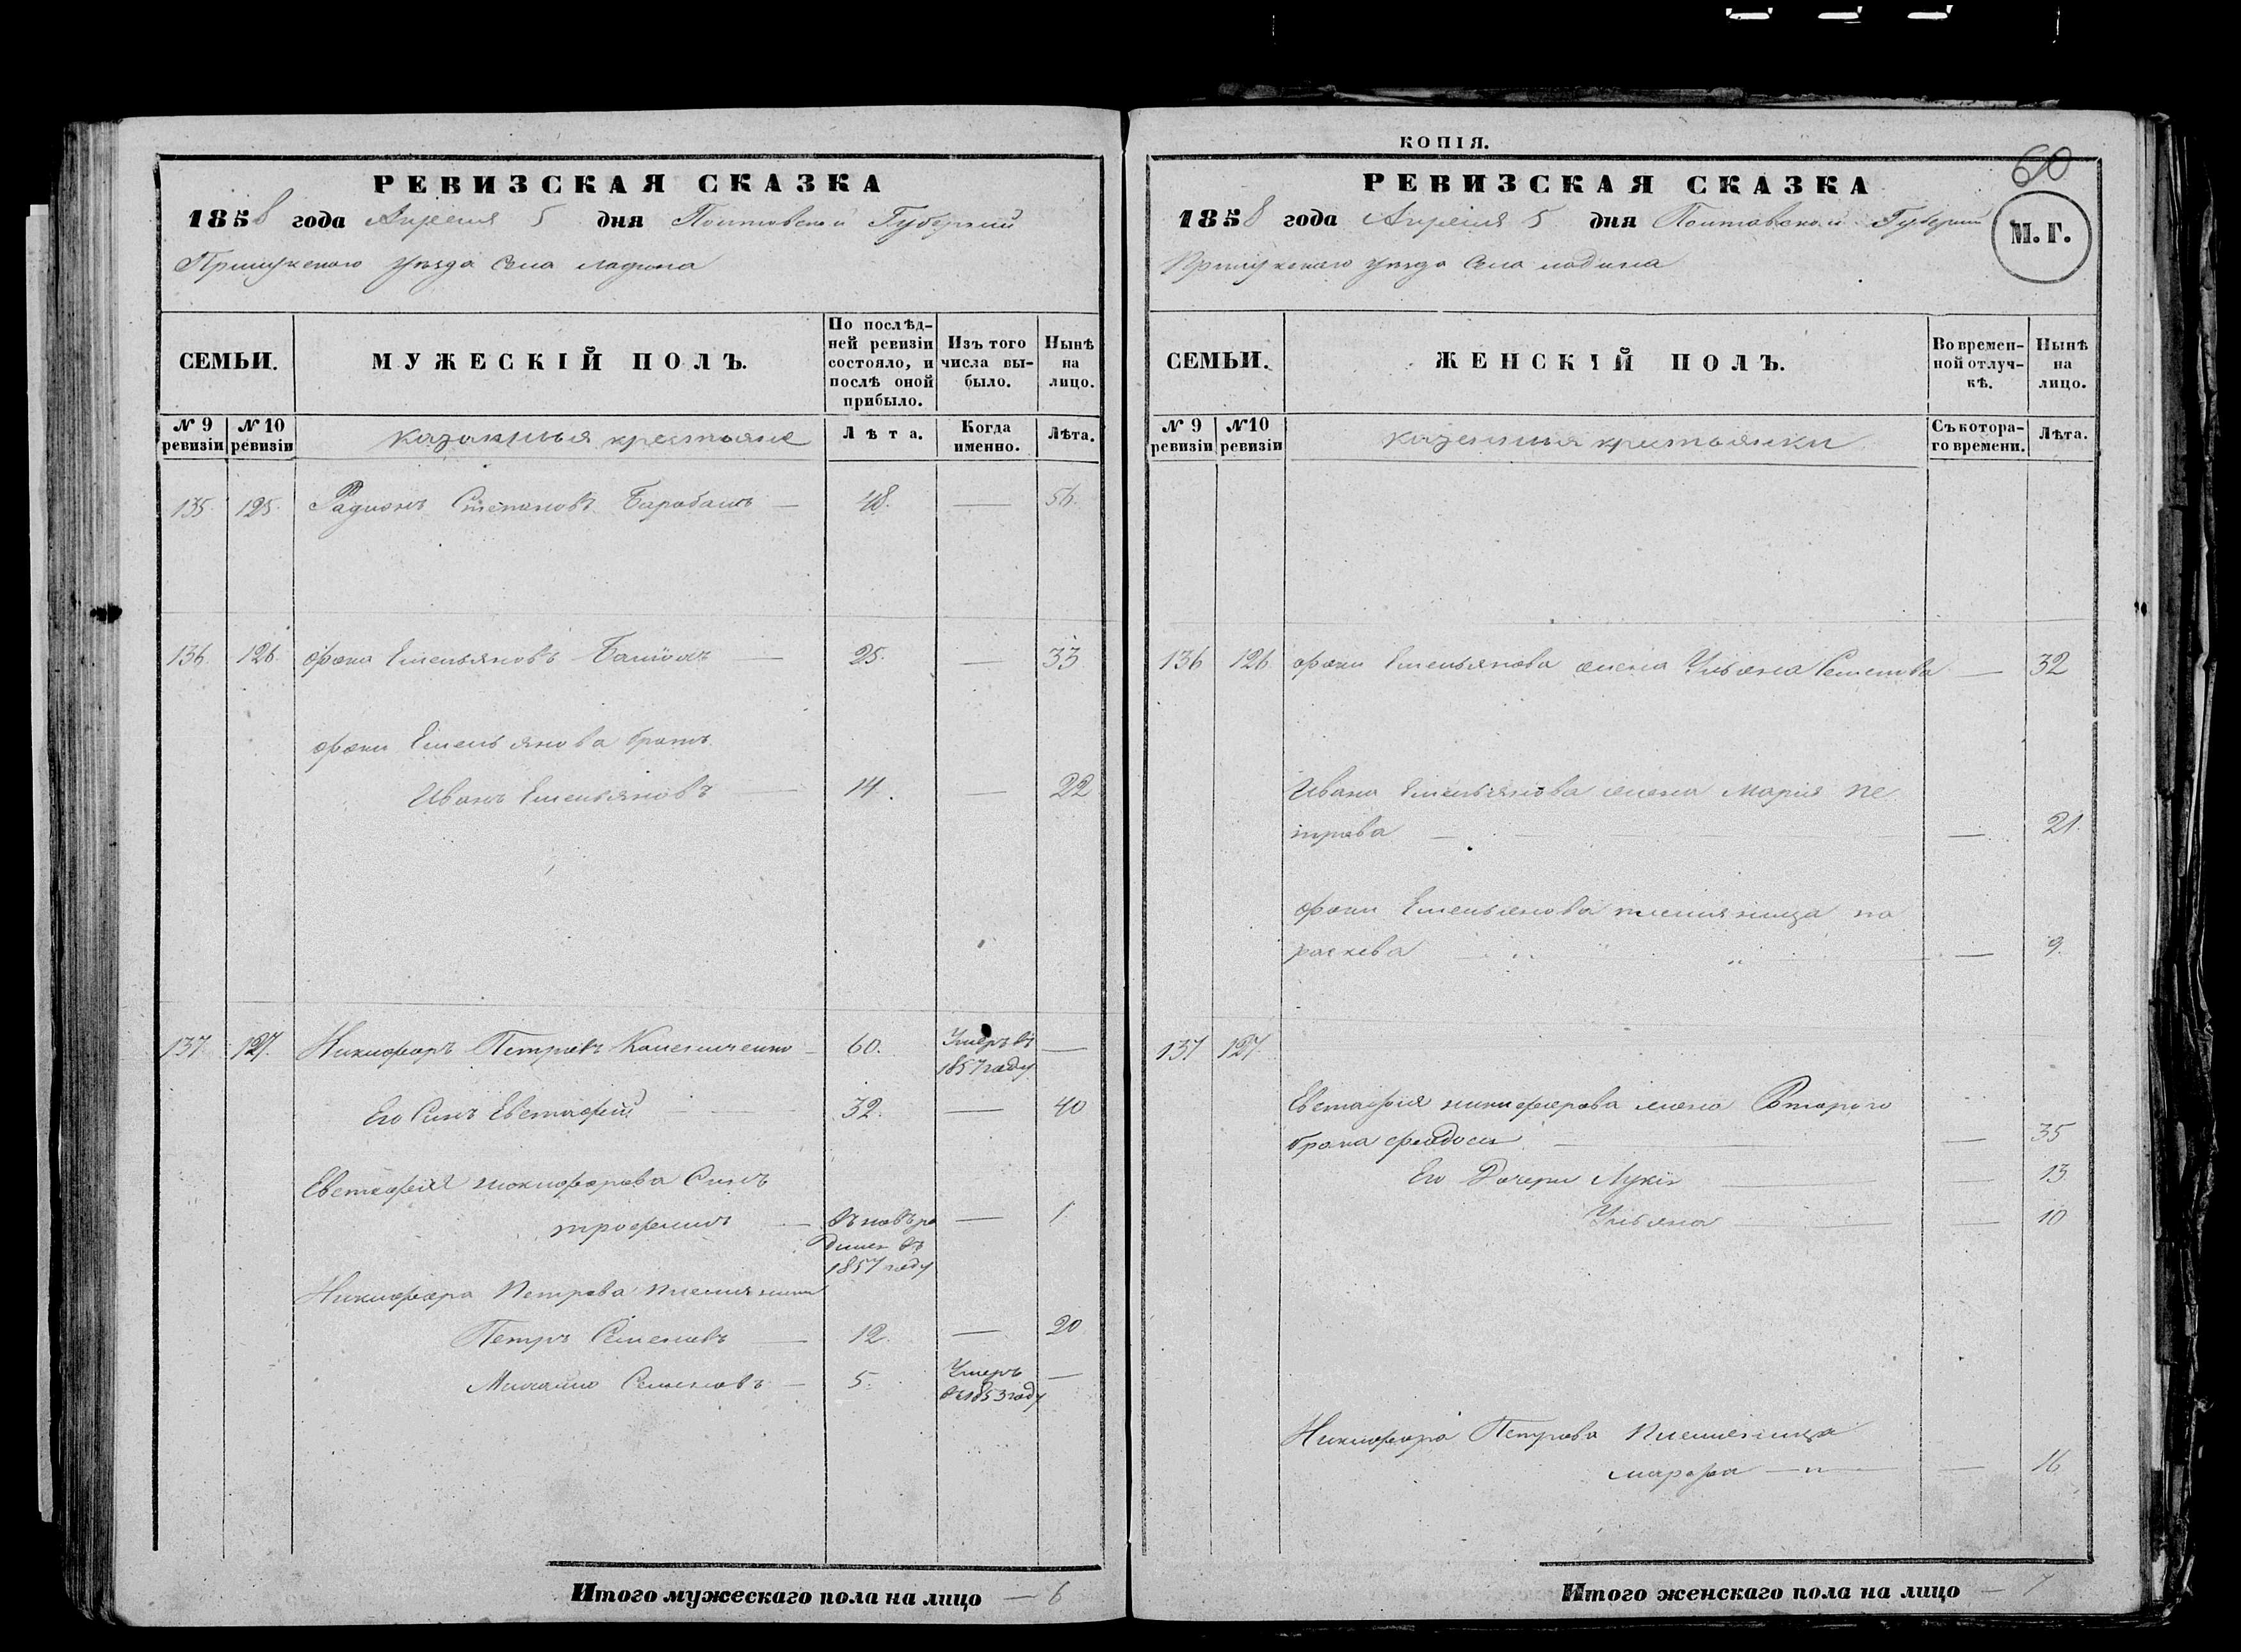 РЕВИЗСКАЯ СКАЗКА
1858 года Апреля 5 дня Полтавской Губернии
Прилукского уезда села ладина
СЕМЬИ.
МУЖЕСКІЙ ПОЛЪ.
По послѣд-
ней ревизіи
состояло, и
послѣ оной
прибыло.
Изъ того
числа вы-
было.
Нынѣ
на
лицо.
№ 9
ревизіи
№ 10
ревизіи
крестьяне
Лѣта.
Когда
именно.
Лѣта.
135. 125. Радионъ Степановъ Барабашъ — 48. — 56.
136. 126. фоки Емельяновъ — 25. — 33
фоки Емельянова братъ
Иванъ Емельяновъ — 14. — 22
137. 127. Никифоръ Петровъ — 60. Умеръ въ —
1857 году
Его Сынъ Евстафий — 32. — 40
Евстафия никифорова Сынъ
трофимъ — вновь ро — 1
дился въ
1857 году
Никифора Петрова племянники
Петръ Семеновъ — 12. — 20
Михайло Семеновъ — 5. Умеръ —
въ 1853 году
Итого мужескаго пола на лицо — 6
КОПІЯ.
60
РЕВИЗСКАЯ СКАЗКА
М. Г.
1858 года Апреля 5 дня Полтавской Губернии
Прилукского уезда села ладина
СЕМЬИ.
ЖЕНСКІЙ ПОЛЪ.
Во времен-
ной отлуч-
кѣ.
Нынѣ
на
лицо.
№ 9
ревизіи
№ 10
ревизіи
казенныя крестьянки
Съ котора-
го времени.
Лѣта.
136 126 фоки Емельянова жена Ульяна Семенова — 32
Ивана Емельянова жена Мария пе
трова — — 21.
фоки Емельянова племянница па
раскева — — 9.
137 127.
Евстафия никифорова жена Второго
брака феодосия — — 35
Его Дочери Лукія — — 13
Ульяна — — 10
Никифора Петрова племянница
марфа — — 16
Итого женскаго пола на лицо — 7